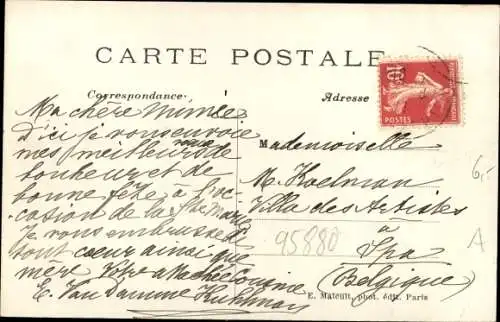 CARTE POSTALE
Correspondance
Adresse
10c
POSTES
Ma chère Mimie
D'ici je vous envoie
mes meilleurs vœux de
bonheur et de
bonne fête à l'oc-
casion de la Ste Marie
Je vous embrasse de
tout cœur ainsi que
mère Votre
Cousine
E. Van Damme Kuhlman
Mademoiselle
M. Koelman
Villa des Artistes
à
Spa
(Belgique)
95880
6,-
A
E. Mateuil, phot. édit. Paris